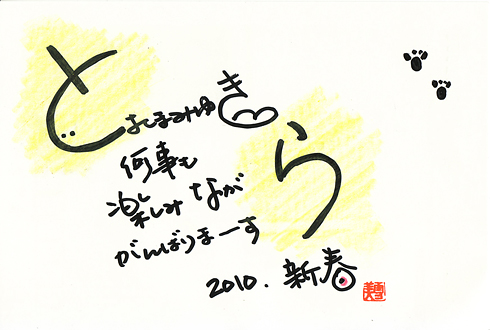 とよしまみゆき
ら
何事も
楽しみながら
がんばりまーす
2010. 新春